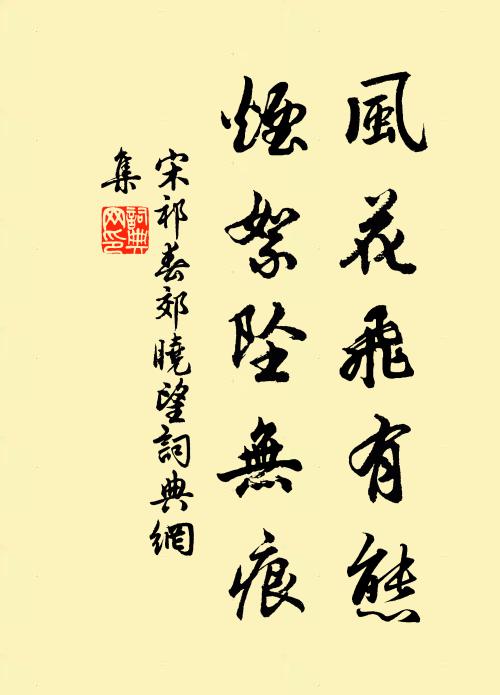 風花飛有態
煙絮墜無痕
宋祁春郊曉望詞典網
集
詞典
网印